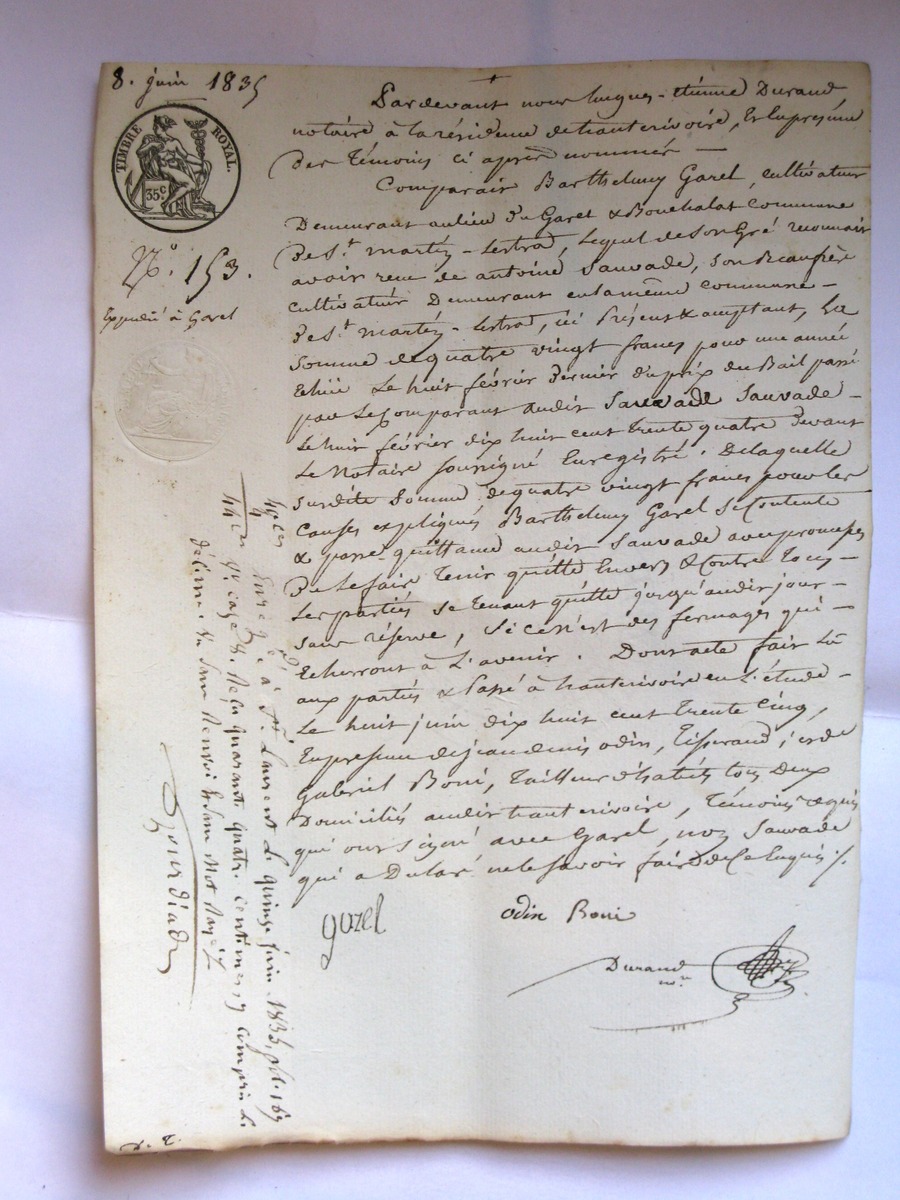 8. juin 1835
TIMBRE ROYAL.
35c.
N.º 153.
Expédié à Garel
Pardevant nous hugues-étienne Durand,
notaire à la résidence de hauterivoire, Et En présence
Des Témoins ci après nommés —
Comparait Barthelemy Garel, cultivateur
Demeurant au lieu du Garet & Bouchalat commune
De St. martin-Lestrat, Lequel de Son Gré reconnait
avoir reçu de antoine Sauvade, Son Beaufrère
cultivateur Demeurant en la même commune —
De St. martin-Lestrat, ici Présent & acceptant, La
Somme de quatre vingt francs pour une année
Echüe Le huit février Dernier du prix du Bail passé
par Le Comparant audit Sauvade Sauvade —
Le huit février dix huit cent Trente quatre Devant
Le Notaire soussigné Enregistré. De laquelle
Surdite Somme de quatre vingt francs pour les
Causes expliquées Barthelemy Garel Se Contente
& passe quittance audit Sauvade avec promesse
De Le faire Tenir quitte Envers & Contre Tous —
Les parties se tenant quitte jusqu'audit jour —
Sans réserve, Si ce n'est des fermages qui —
Echerront à L'avenir. Dont acte fait Lû
aux parties & Passé à hauterivoire en L'étude —
Le huit juin dix huit cent Trente Cinq,
En présence de jean denis odin, Tisserand, & de
Gabriel Boni, Tailleur d'habits tous Deux
Domiciliés audit hauterivoire, Témoins requis
qui ont signé avec Garel, non Sauvade
qui a Déclaré ne le Savoir faire De Ce Enquis ./.
garel
odin Boni
Durand
nre
Enregistré à St. Laurent Le quinze juin 1835, fol. 163
Reçu quarante quatre centimes y compris Le
décime
D. T.